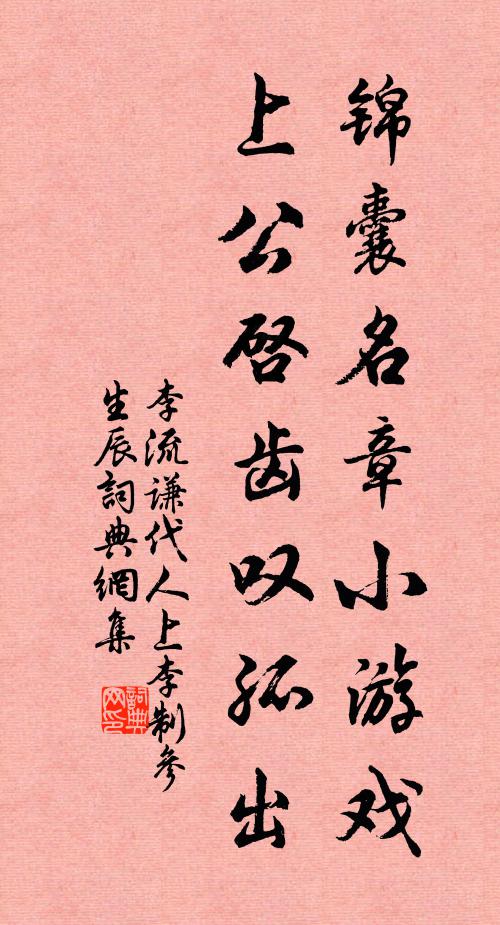 锦囊名章小游戏
上公启齿叹孤出
李流谦代人上李制参
生辰詞典網集
詞典
网印